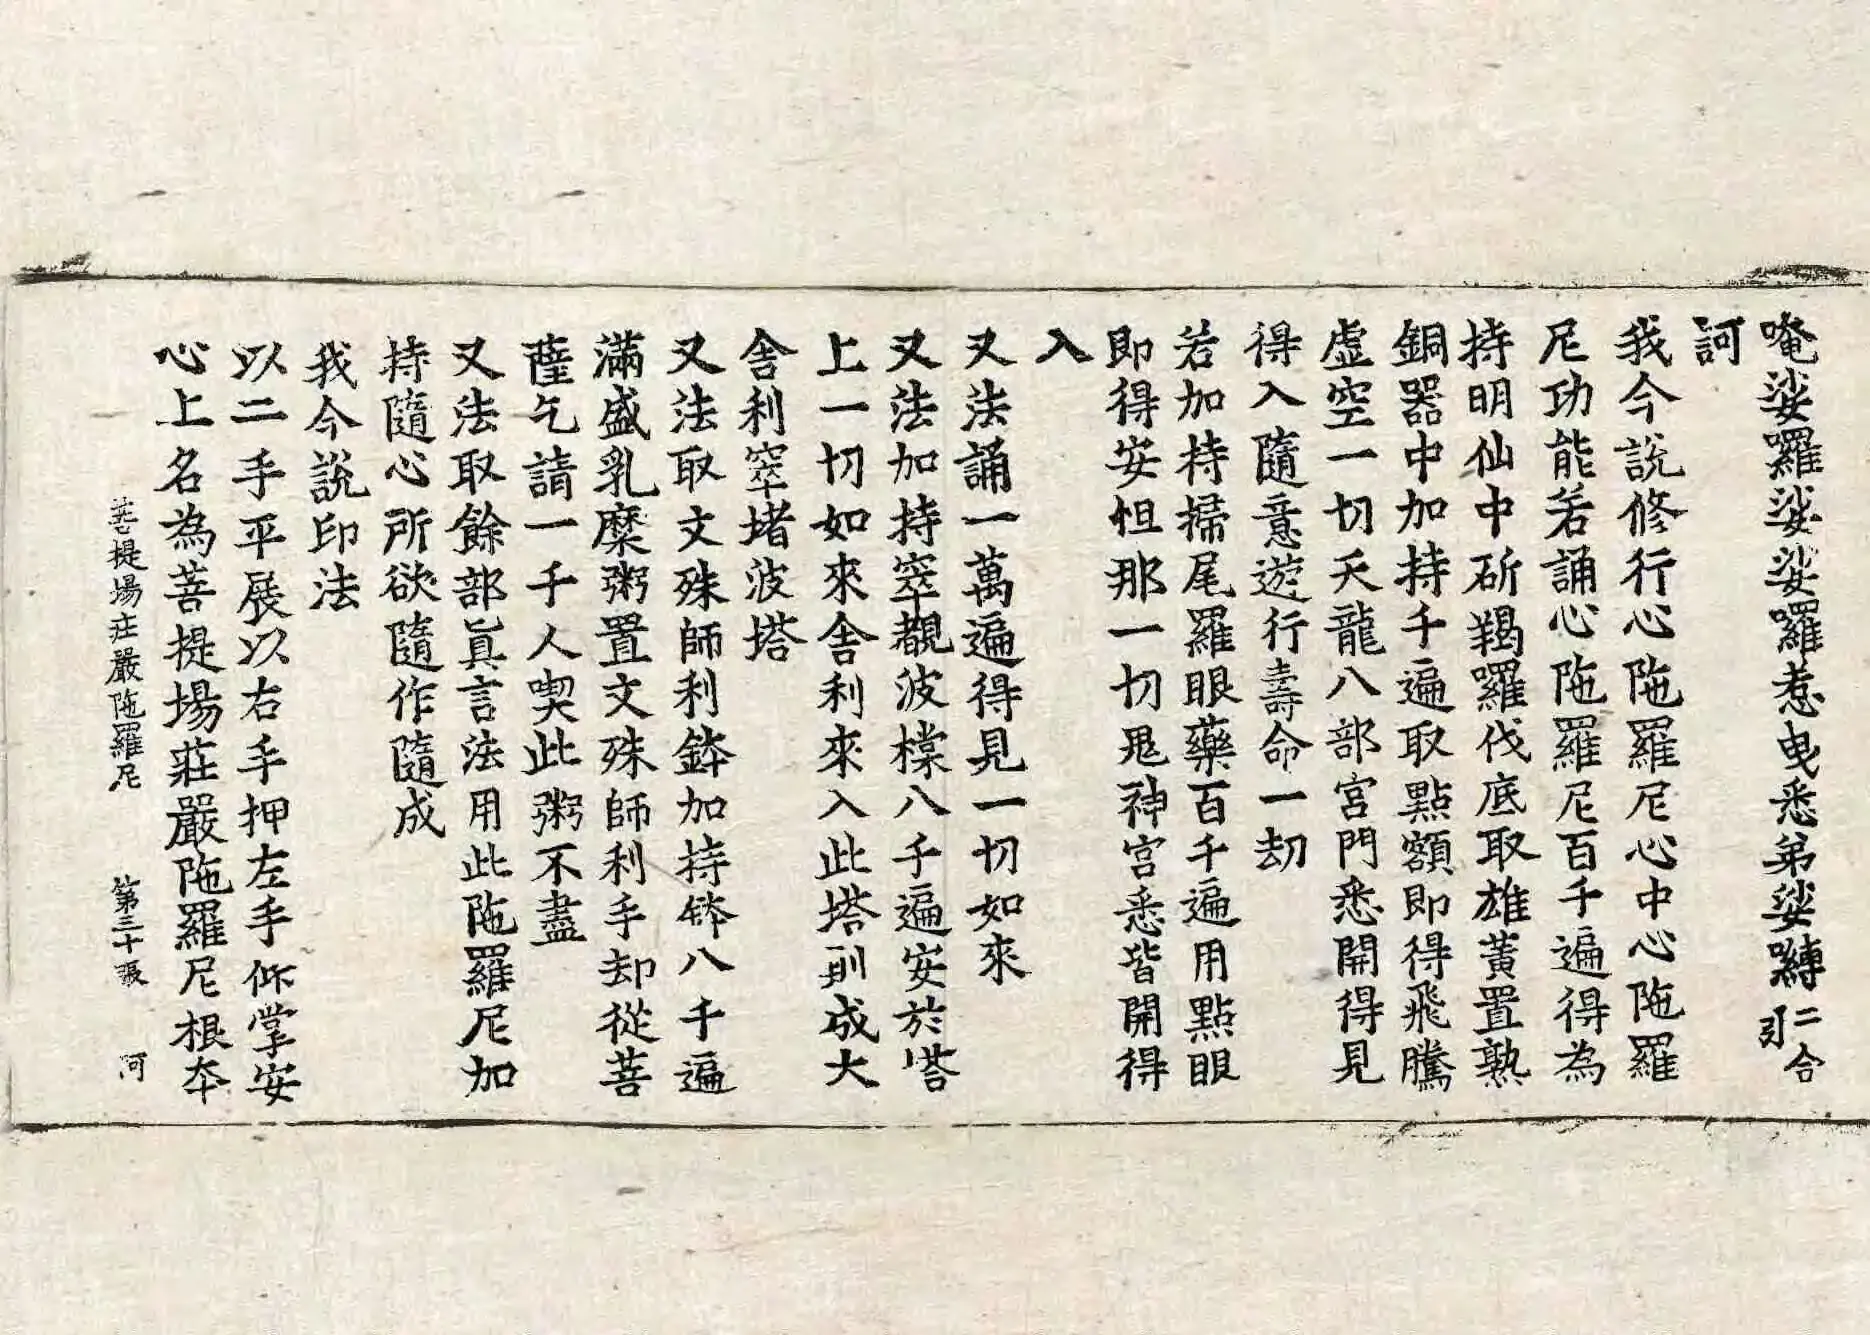 唵娑羅娑娑囉惹曳悉弟娑嚩二合引
訶
我今說修行心陁羅尼心中心陁羅
尼功能若誦心陁羅尼百千遍得為
持明仙中斫羯囉伐底取雄黃置熟
銅器中加持千遍取點額即得飛騰
虛空一切天龍八部宮門悉開得見
得入隨意遊行壽命一劫
若加持掃尾羅眼藥百千遍用點眼
即得安怛那一切鬼神宮悉皆開得
入
又法誦一萬遍得見一切如來
又法加持窣覩波樘八千遍安於塔
上一切如來舍利來入此塔則成大
舍利窣堵波塔
又法取文殊師利鉢加持鉢八千遍
滿盛乳糜粥置文殊師利手却從菩
薩乞請一千人喫此粥不盡
又法取餘部眞言法用此陁羅尼加
持隨心所欲隨作隨成
我今說印法
以二手平展以右手押左手仰掌安
心上名為菩提場莊嚴陁羅尼根本
菩提場莊嚴陁羅尼 第三十張 河